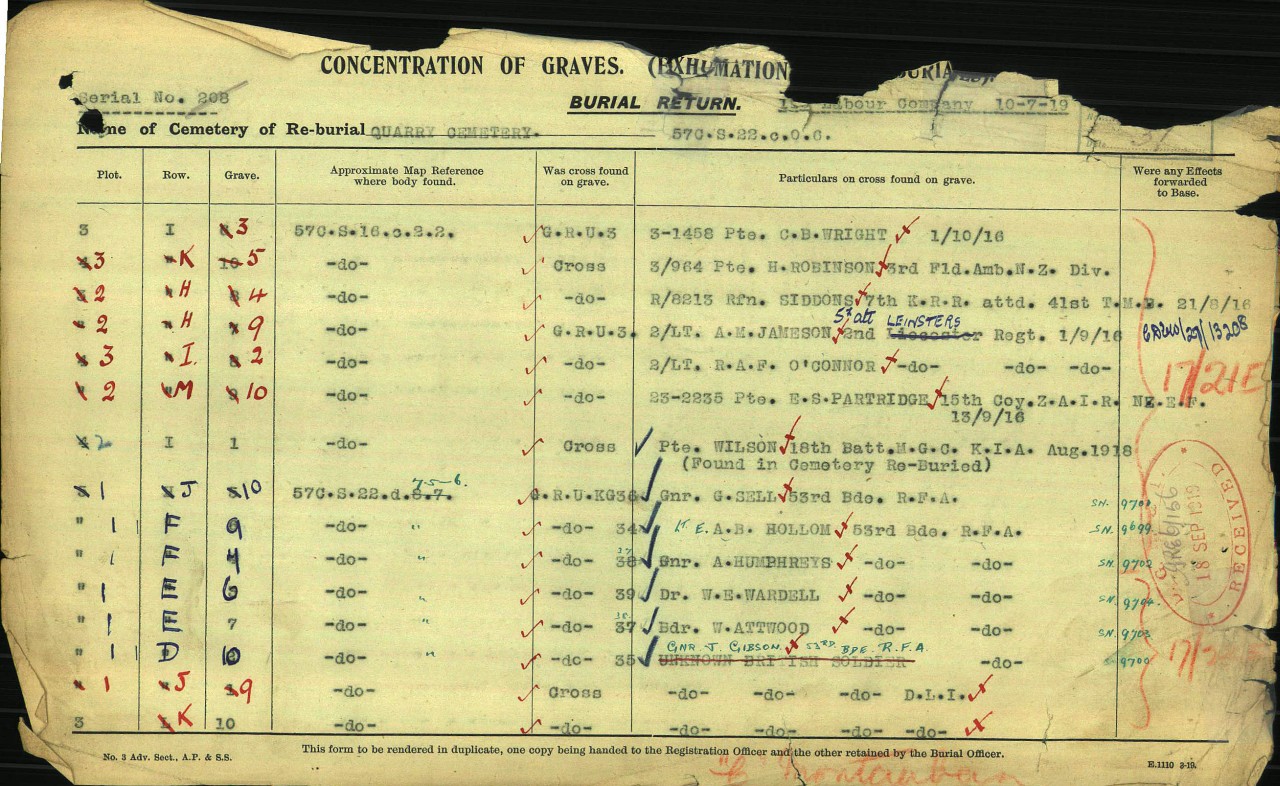 CONCENTRATION OF GRAVES. (EXHUMATION
Serial No. 208 BURIAL RETURN. Labour Company 10-7-19
Name of Cemetery of Re-burial QUARRY CEMETERY. 57C.S.22.c.0.6.
Plot. Row. Grave. Approximate Map Reference where body found. Was cross found on grave. Particulars on cross found on grave. Were any Effects forwarded to Base.
3 I 3 57C.S.16.c.2.2. G.R.U.3 3-1458 Pte. C.B.WRIGHT 1/10/16
3 K 5 -do- Cross 3/964 Pte. H.ROBINSON 3rd Fld.Amb.N.Z. Div.
2 H 4 -do- -do- R/8213 Rfn. SIDDONS 7th K.R.R. attd. 41st T.M.B. 21/8/16
5th att LEINSTERS
2 H 9 -do- G.R.U.3. 2/LT. A.M.JAMESON 2nd Leicester Regt. 1/9/16
3 I. 2 -do- -do- 2/LT. R.A.F. O'CONNOR -do- -do- -do-
2 M 10 -do- -do- 23-2235 Pte. E.S.PARTRIDGE 15th Coy.Z.A.I.R. NZ.E.F.
13/9/16
2 I 1 -do- Cross Pte. WILSON 18th Batt.M.G.C. K.I.A. Aug.1918
(Found in Cemetery Re-Buried)
7-5-6.
1 J 10 57C.S.22.d.8.7. G.R.U.KG36 Gnr. G.SELL 53rd Bde. R.F.A. SN.
" 1 F 9 -do- " -do- 34 Lt E. A.B. HOLLOM 53rd Bde. R.F.A. SN. 9699
37
" 1 F 4 -do- " -do- 38 Gnr. A.HUMPHREYS -do- -do- SN. 9702
" 1 E 6 -do- " -do- 39 Dr. W.E.WARDELL -do- -do- SN. 9704
38
" 1 E 7 -do- " -do- 37 Bdr. W.ATTWOOD -do- -do- SN. 9703
GNR. J. GIBSON. 53RD. BDE. R.F.A.
" 1 D 10 -do- " -do- 35 UNKNOWN BRITISH SOLDIER -do- 9700
1 J 9 -do- Cross -do- -do- -do- D.L.I.
3 K 10 -do- -do- -do- -do- -do- -do-
17/21E
RECEIVED
18 SEP 1919
No. 3 Adv. Sect., A.P. & S.S. This form to be rendered in duplicate, one copy being handed to the Registration Officer and the other retained by the Burial Officer. E.1110 3-19.
"C" Montauban